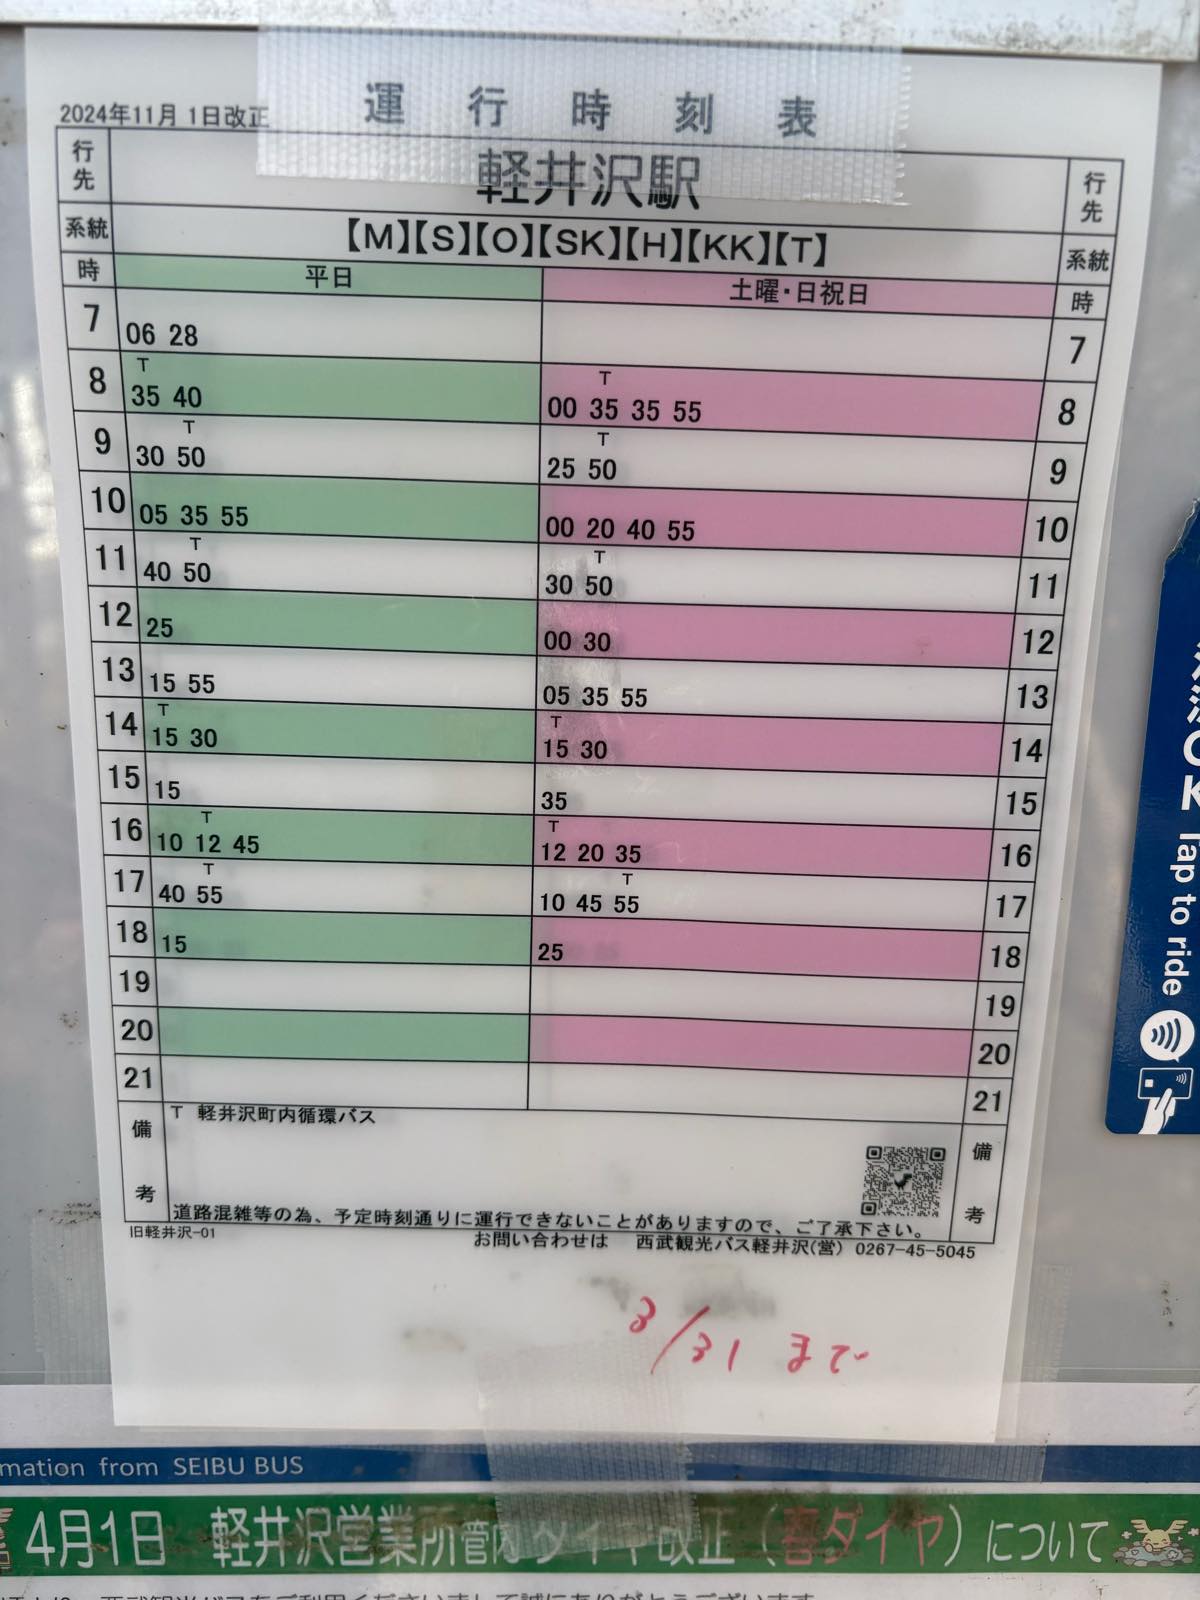 2024年11月 1日改正
運行時刻表
行先 軽井沢駅 行先
系統 【M】【S】【O】【SK】【H】【KK】【T】 系統
時 平日 土曜・日祝日 時
7 06 28 7
T T
8 35 40 00 35 35 55 8
T T
9 30 50 25 50 9
10 05 35 55 00 20 40 55 10
T T
11 40 50 30 50 11
12 25 00 30 12
13 15 55 05 35 55 13
T T
14 15 30 15 30 14
15 15 35 15
T T
16 10 12 45 12 20 35 16
T T
17 40 55 10 45 55 17
18 15 25 18
19 19
20 20
21 21
備考 T 軽井沢町内循環バス 備考
道路混雑等の為、予定時刻通りに運行できないことがありますので、ご了承下さい。
旧軽井沢-01
お問い合わせは 西武観光バス軽井沢(営) 0267-45-5045
3/31 まで
OK Tap to ride
mation from SEIBU BUS
4月1日 軽井沢営業所管内ダイヤ改正(春ダイヤ)について